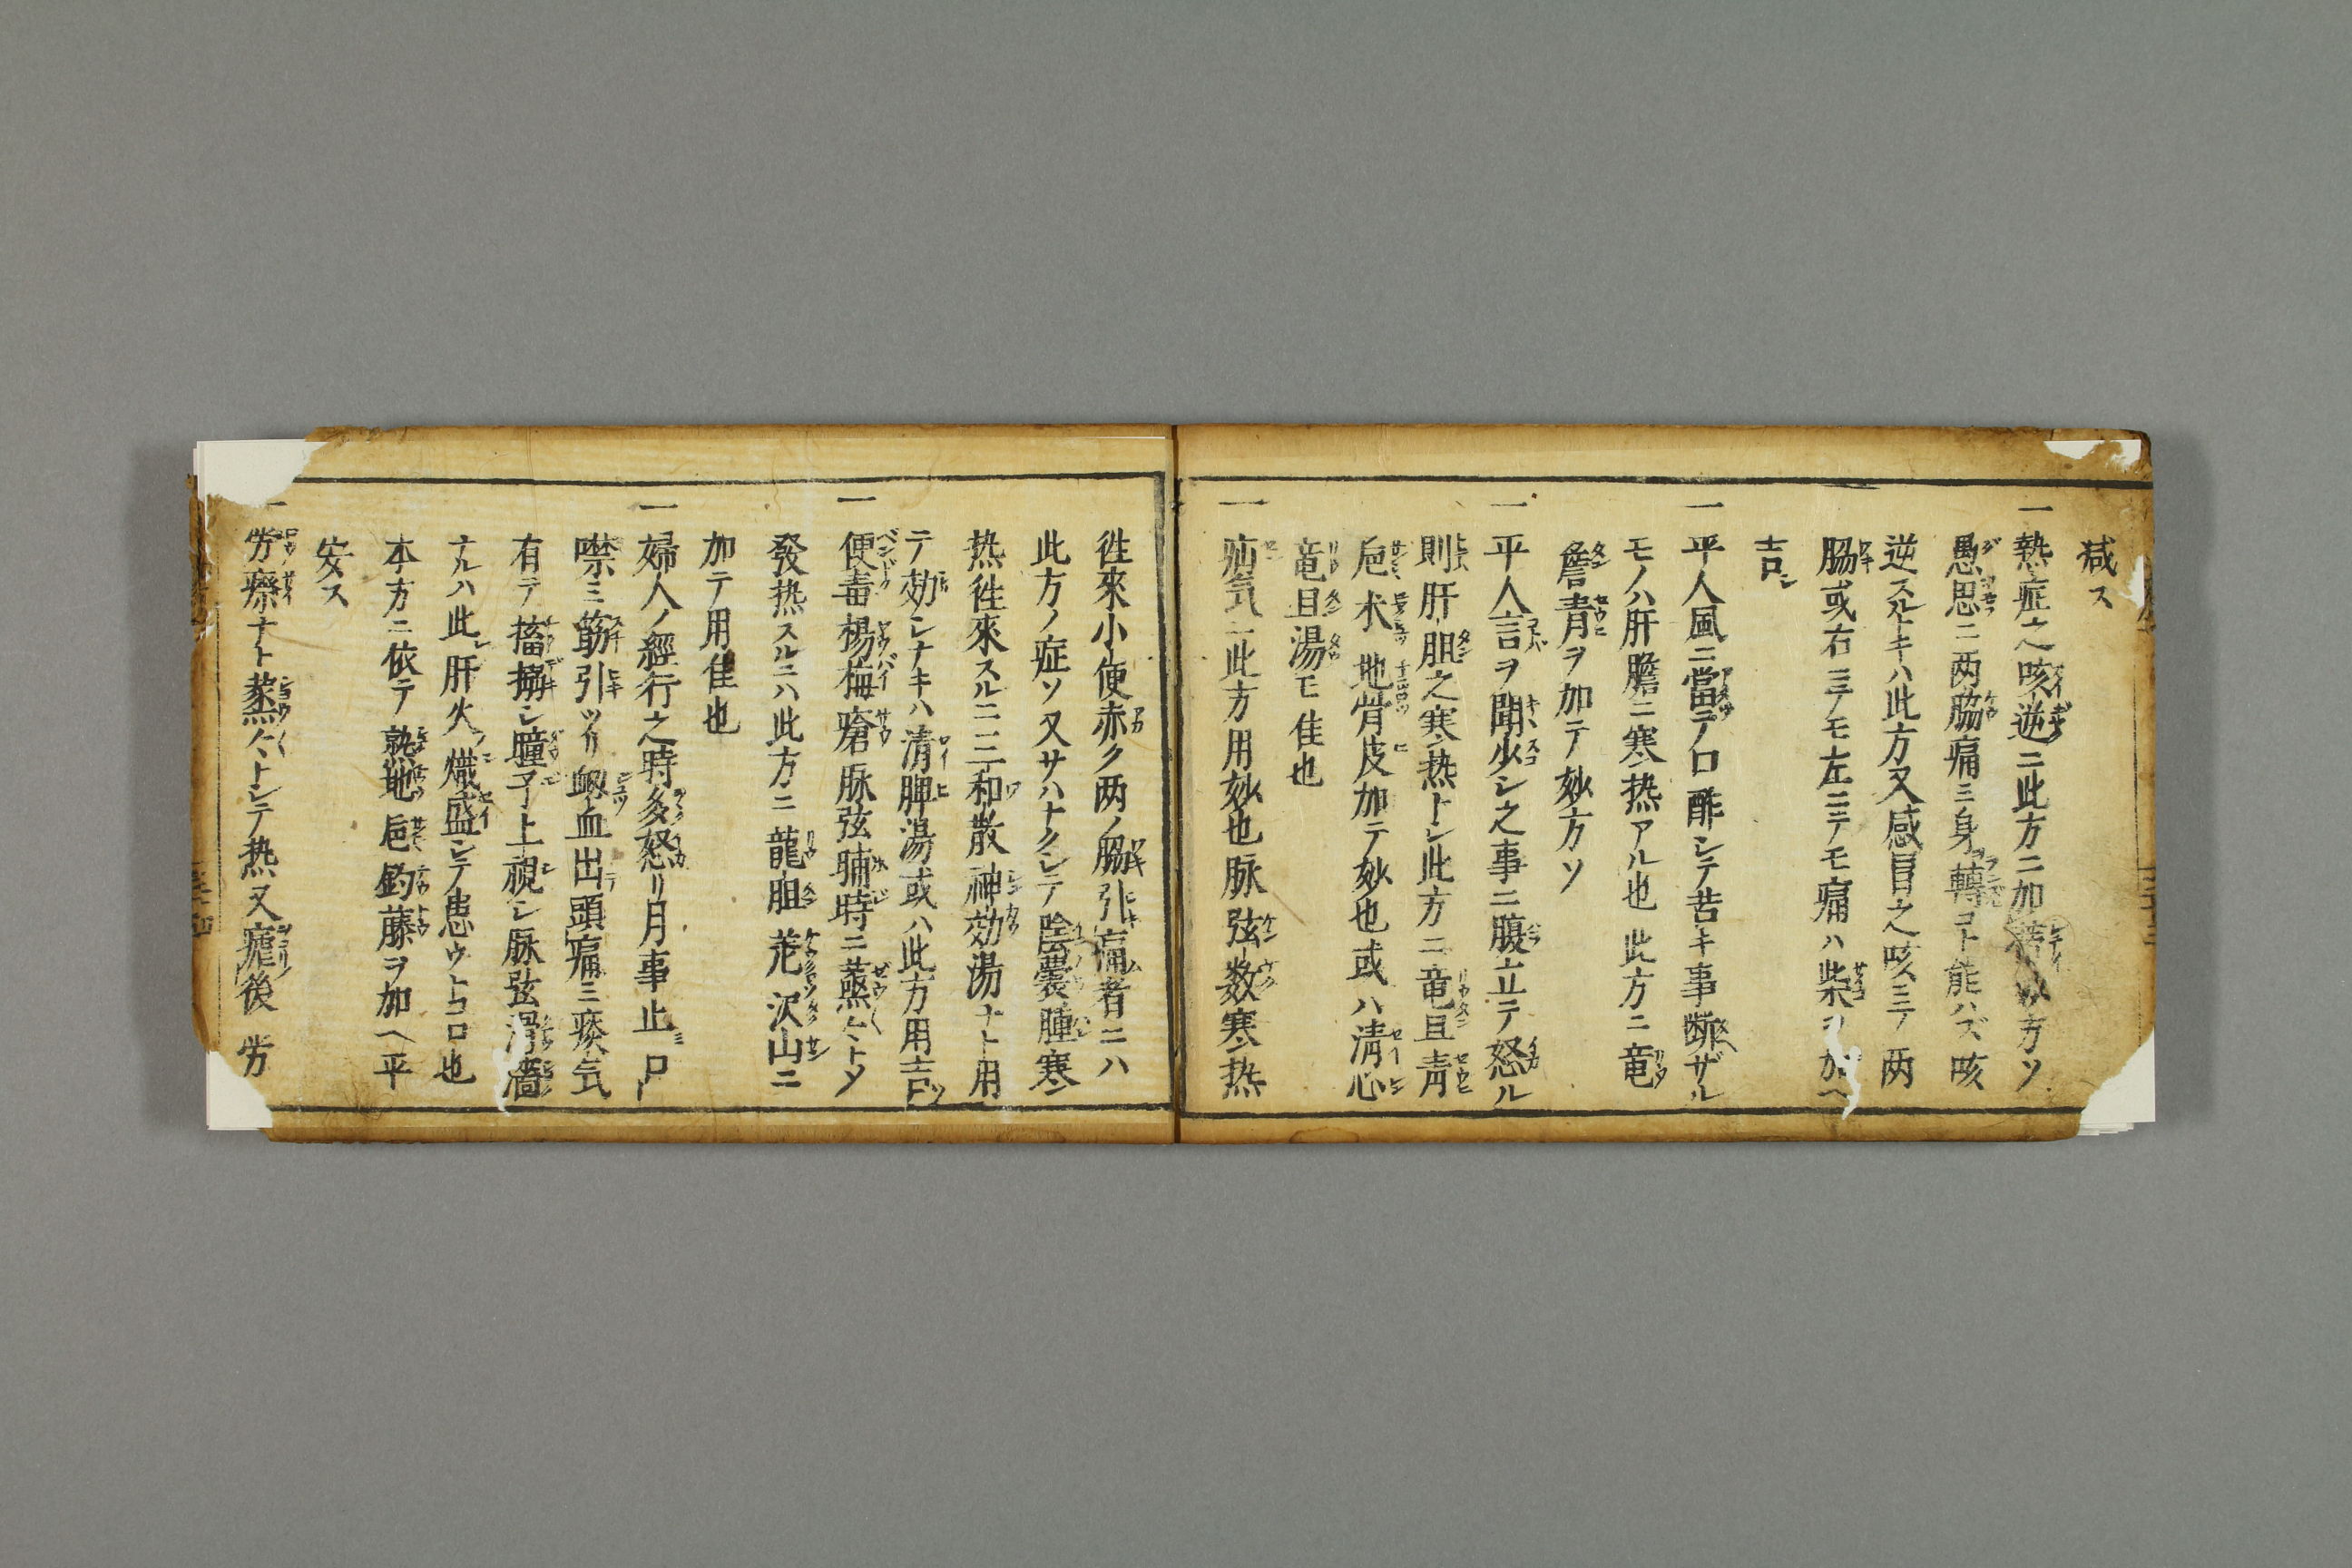 減ス
一熱症之咳逆ニ此方ニ加 方ソ
愚思ニ两脇痛ミ身轉コト能ハズ咳
逆スルキハ此方又感冒之咳ミテ两
脇或右ミテモ左ニテモ痛ハ柴ヲ加ヘ
吉シ
一平人風ニ當テ口酢シテ苦キ事断ザル
モノハ肝膽ニ寒热アル也此方ニ竜
膽青ヲ加テ妙方ソ
一平人言ヲ聞少シ之事ニ腹立テ怒ル
則肝胆之寒热トシ此方ニ竜且青
巵朮地骨皮加テ妙也或ハ清心
竜且湯モ佳也
一疝気ニ此方用妙也脉弦数寒热
徃來小便赤ク两ノ脇引痛者ニハ
此方ノ症ソ又サハナクシテ陰囊腫寒
热徃來スルニ三和散神効湯ナト用
テ効シナキハ清脾湯或ハ此方用吉ソ
一便毒楊梅瘡脉弦晡時ニ蒸〻トメ
發热スルニハ此方ニ龍胆芫沢山ニ
加テ用佳也
一婦人ノ經行之時多怒リ月事止口
噤ミ筋引ツリ衂血出頭痛ミ痰気
有テ搐搦シ瞳子上視シ脉弦滑濇
ナルハ此レ肝火熾盛シテ患ウトコロ也
本方ニ依テ熟地巵釣藤ヲ加ヘ平
安ス
一労瘵ナト蒸〻トシテ热又瘧後労